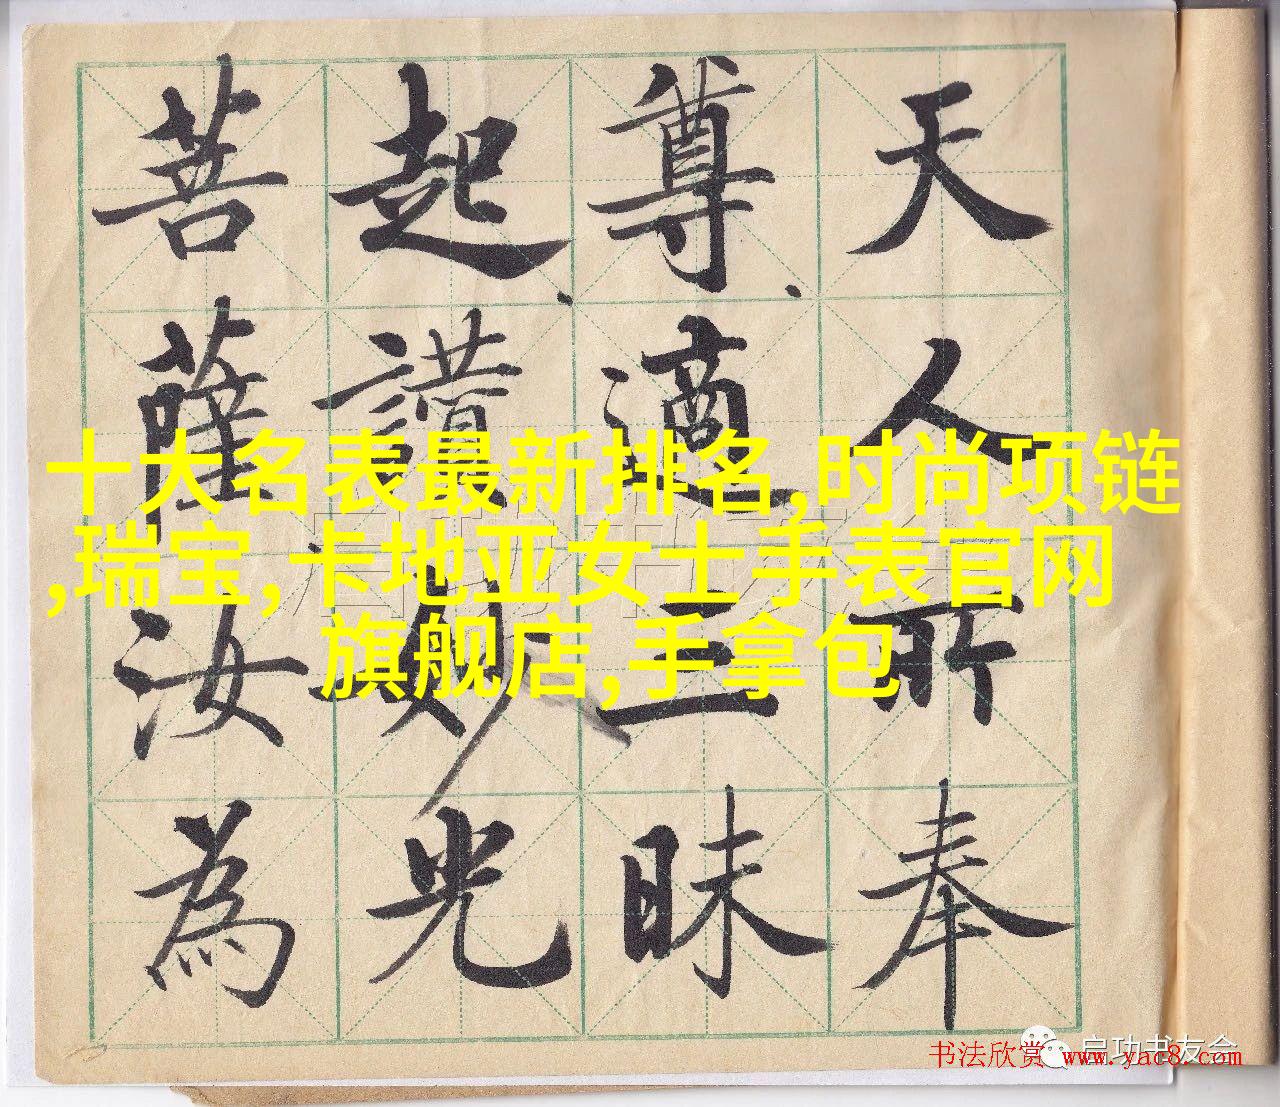 天人所奉
尊適三昧
起讃妙光
菩薩汝為
十大名表最新排名,时尚项链
,瑞宝,卡地亚女士手表官网
旗舰店,手拿包
启功书友会
书法欣赏 www.yac8.com